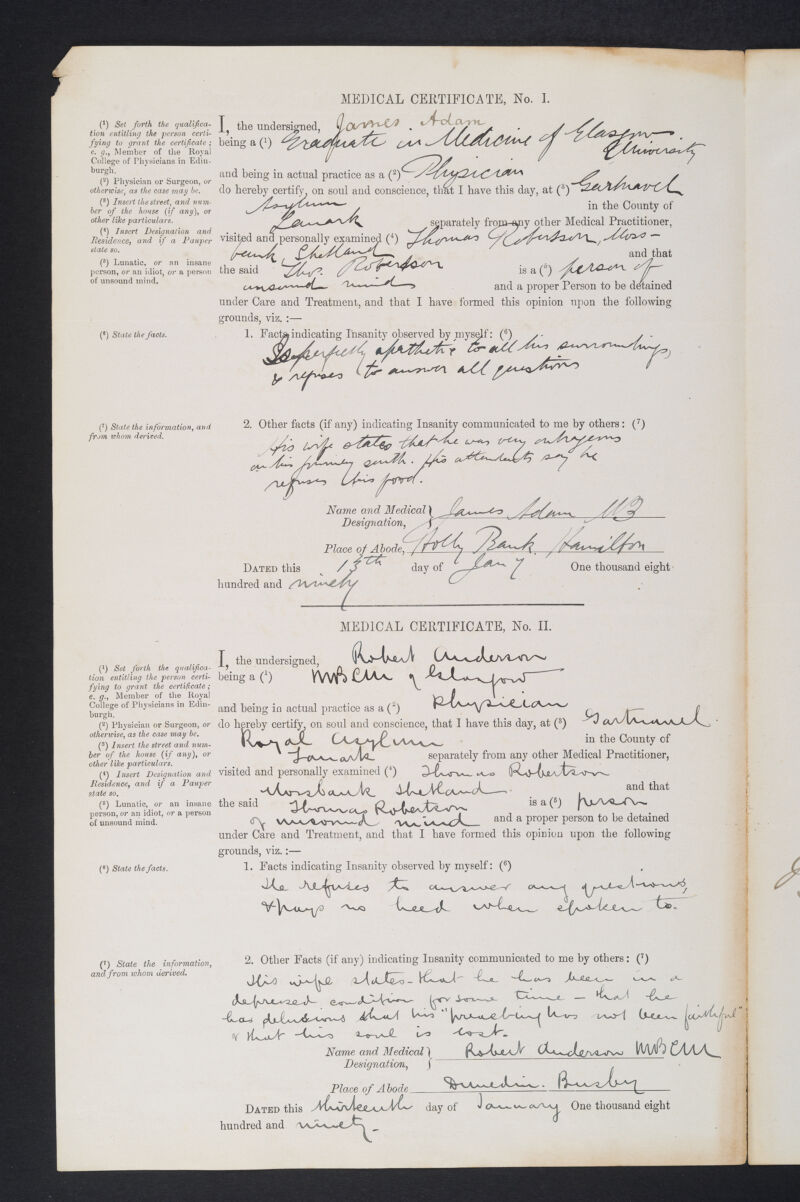 MEDICAL CERTIFICATE, No. I.
(¹) Set forth the qualifica-
tion entitling the person certi-
fying to grant the certificate;
e. g., Member of the Royal
College of Physicians in Edin-
burgh.
(²) Physician or Surgeon, or
otherwise, as the case may be.
(³) Insert the street, and num-
ber of the house (if any), or
other like particulars.
(⁴) Insert Designation and
Residence, and if a Pauper
state so.
(⁵) Lunatic, or an insane
person, or an idiot, or a person
of unsound mind.
I, the undersigned, James Adam
being a (¹) Graduate in Medicine of Glasgow
University
and being in actual practice as a (²) Physician
do hereby certify, on soul and conscience, that I have this day, at (³) Gartnavel
Asylum in the County of
Lanark separately from any other Medical Practitioner,
visited and personally examined (⁴) Thomas Robertson, Moss-
bank, Shetland and that
the said Thos. Robertson is a (⁵) person of
unsound mind and a proper Person to be detained
under Care and Treatment, and that I have formed this opinion upon the following
grounds, viz. :—
(⁶) State the facts.
1. Facts indicating Insanity observed by myself: (⁶)
Is perfectly apathetic to all his surroundings,
& refuses to answer all questions
(⁷) State the information, and
from whom derived.
2. Other facts (if any) indicating Insanity communicated to me by others: (⁷)
His wife states that he was very outrageous
on his journey south. His attendants say he
refuses his food.
Name and Medical
Designation, James Adam MD
Place of Abode, Holly Bank, Hamilton
DATED this 13th day of Jany One thousand eight
hundred and ninety
MEDICAL CERTIFICATE, No. II.
(¹) Set forth the qualifica-
tion entitling the person certi-
fying to grant the certificate;
e. g., Member of the Royal
College of Physicians in Edin-
burgh.
(²) Physician or Surgeon, or
otherwise, as the case may be.
(³) Insert the street and num-
ber of the house (if any), or
other like particulars.
(⁴) Insert Designation and
Residence, and if a Pauper
state so.
(⁵) Lunatic, or an insane
person, or an idiot, or a person
of unsound mind.
I, the undersigned, Robert Anderson
being a (¹) MB CM of Glasgow
and being in actual practice as a (²) Physician
do hereby certify, on soul and conscience, that I have this day, at (³) Gartnavel
Royal Asylum in the County of
Lanark separately from any other Medical Practitioner,
visited and personally examined (⁴) Thomas Robertson
Mossbank Shetland and that
the said Thomas Robertson is a (⁵) person
of unsound mind and a proper person to be detained
under Care and Treatment, and that I have formed this opinion upon the following
grounds, viz. :—
(⁶) State the facts.
1. Facts indicating Insanity observed by myself: (⁶)
He refuses to answer any questions,
& pays no heed when spoken to.
(⁷) State the information,
and from whom derived.
2. Other Facts (if any) indicating Insanity communicated to me by others: (⁷)
His wife states that he has been in a
depressed condition for some time – that he
has delusions that his "preaching has not been faithful"
& that his soul is lost.
Name and Medical
Designation, Robert Anderson MB CM
Place of Abode Dunedin. Busby
DATED this thirteenth day of January One thousand eight
hundred and ninety–